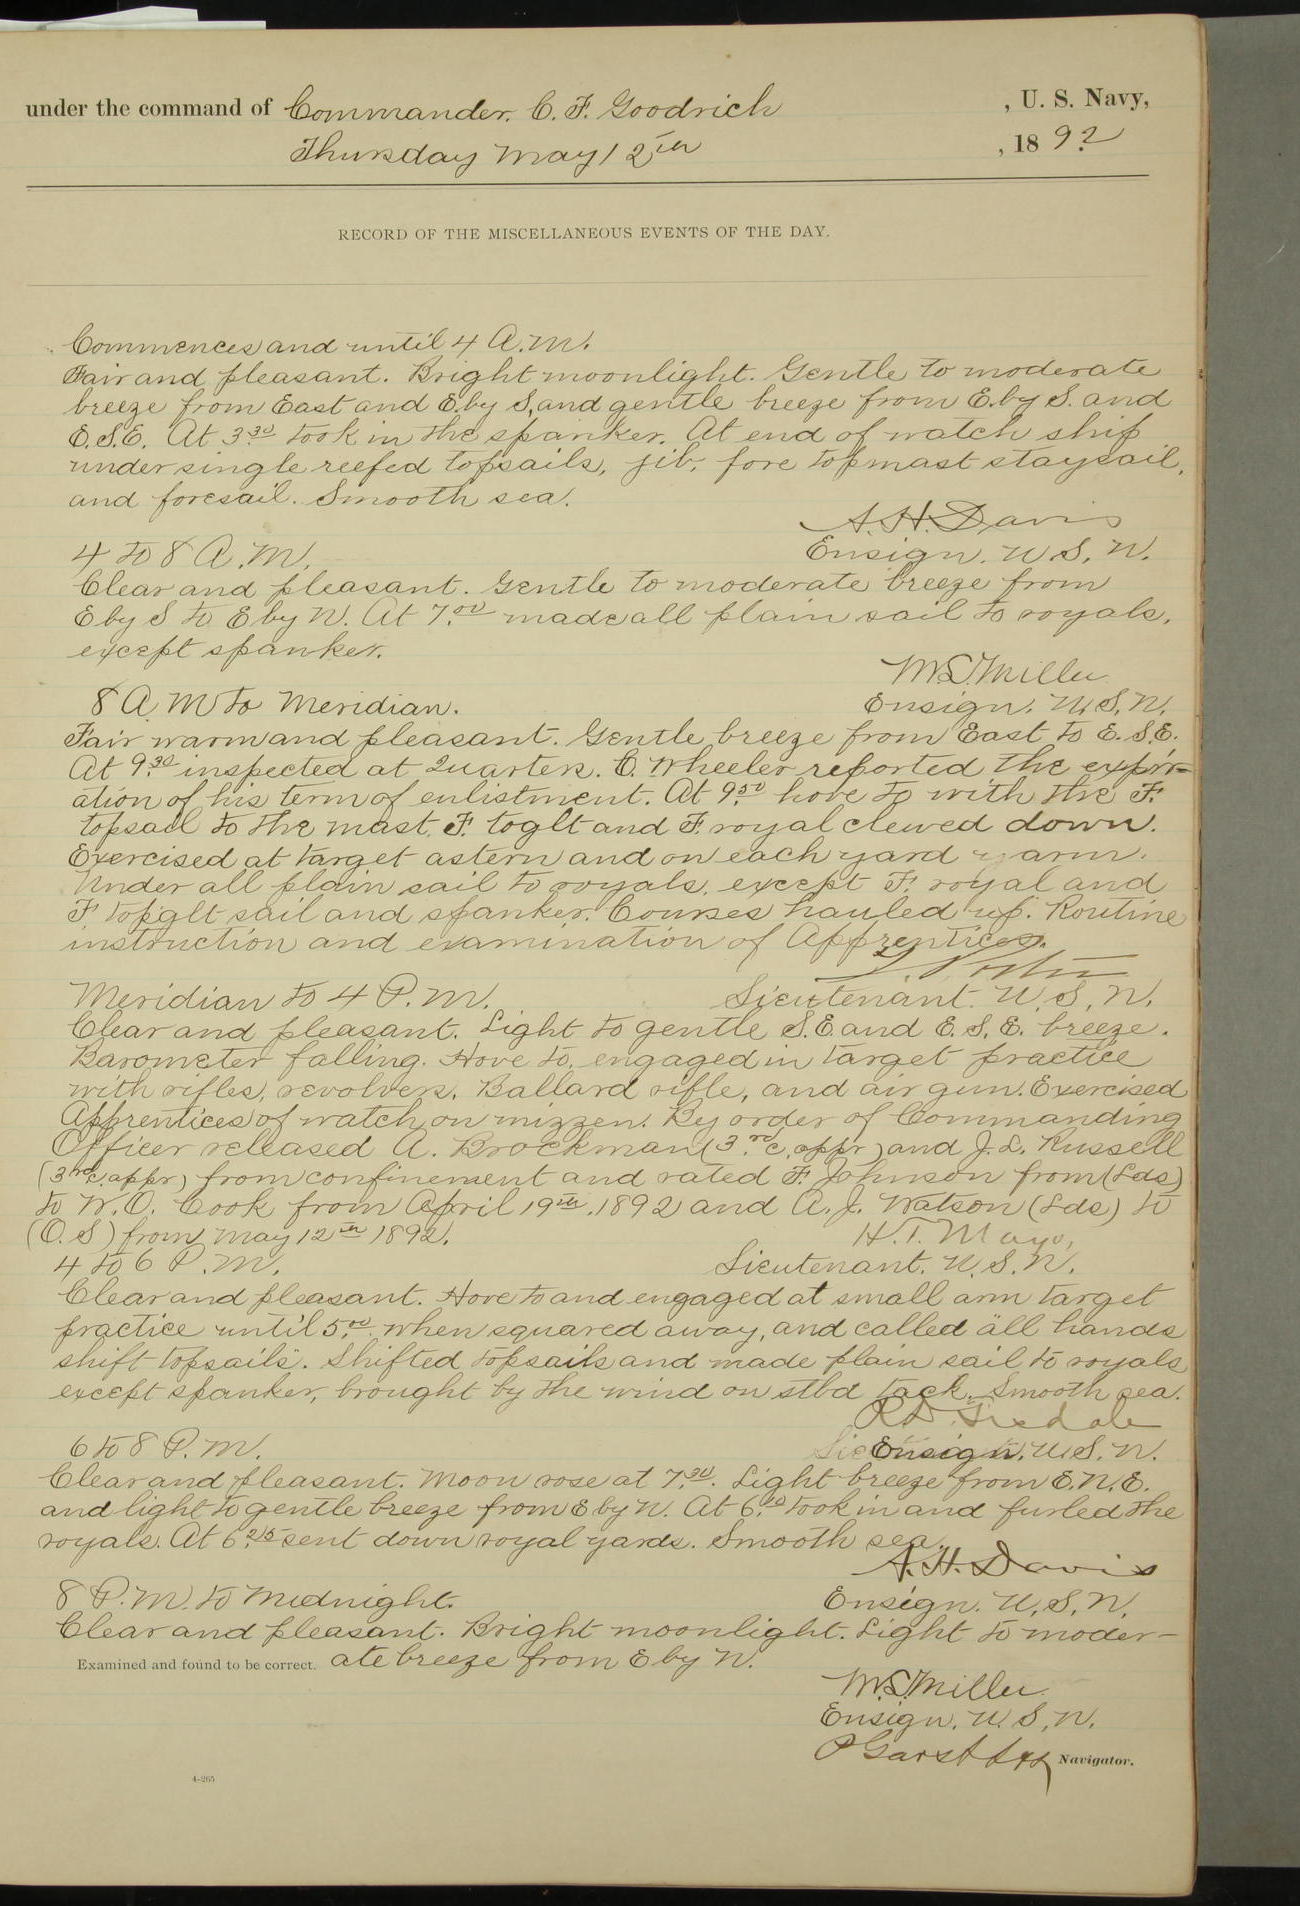 under the command of Commander. C. F. Goodrich , U. S. Navy,
Thursday May 12th , 1892
RECORD OF THE MISCELLANEOUS EVENTS OF THE DAY.
Commences and until 4 A.M.
Fair and pleasant. Bright moonlight. Gentle to moderate
breeze from East and E. by S, and gentle breeze from E. by S. and
E.S.E. At 3.30 took in the spanker. At end of watch ship
under single reefed topsails, jib, fore topmast staysail,
and foresail. Smooth sea.
A. H. Davis
4 to 8 A.M. Ensign. U.S.N.
Clear and pleasant. Gentle to moderate breeze from
E by S to E by N. At 7.00 made all plain sail to royals,
except spanker.
M. L. Miller
8 A M to Meridian. Ensign. U.S.N.
Fair warm and pleasant. Gentle breeze from East to E.S.E.
At 9.30 inspected at Quarters. C. Wheeler reported the expir-
ation of his term of enlistment. At 9.50 hove to with the F.
topsail to the mast. F. toglt and F. royal clewed down.
Exercised at target astern and on each yard yarm.
Under all plain sail to royals, except F. royal and
F topglt sail and spanker. Courses hauled up. Routine
instruction and examination of Apprentices.
Meridian to 4 P.M. Lieutenant. U.S.N.
Clear and pleasant. Light to gentle S.E. and E.S.E. breeze.
Barometer falling. Hove to, engaged in target practice
with rifles, revolvers, Ballard rifle, and air gun. Exercised
Apprentices of watch on mizzen. By order of Commanding
Officer released A. Brockman (3rd c. appr) and J. L. Russell
(3rd c. appr) from confinement and rated F. Johnson from (Lds)
to W.O. Cook from April 19th, 1892 and A. J. Watson (Lds) to
(O.S) from May 12th 1892. H. T. Mayo,
4 to 6 P.M. Lieutenant. U.S.N.
Clear and pleasant. Hove to and engaged at small arm target
practice until 5.00 when squared away, and called all hands
shift topsails. Shifted topsails and made plain sail to royals
except spanker, brought by the wind on stbd tack. Smooth sea.
R. D. Tisdale
6 to 8 P.M. Ensign. U.S.N.
Clear and pleasant. Moon rose at 7.30. Light breeze from E.N.E.
and light to gentle breeze from E by N. At 6.20 took in and furled the
royals. At 6.25 sent down royal yards. Smooth sea.
A. H. Davis
8 P.M. to Midnight. Ensign. U.S.N.
Clear and pleasant. Bright moonlight. Light to moder-
Examined and found to be correct. ate breeze from E by N.
M. L. Miller
Ensign. U.S.N.
P Garst Navigator.
4-265